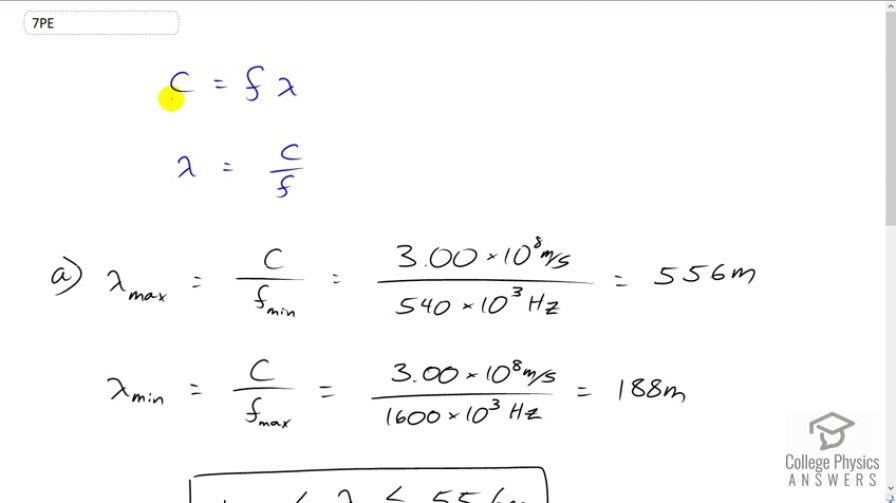 7PE
C = f λ
λ = C/f
a) λmax = C/fmin = 3.00 × 10⁸ m/s / 540 × 10³ Hz = 556 m
λmin = C/fmax = 3.00 × 10⁸ m/s / 1600 × 10³ Hz = 188 m
College Physics
ANSWERS